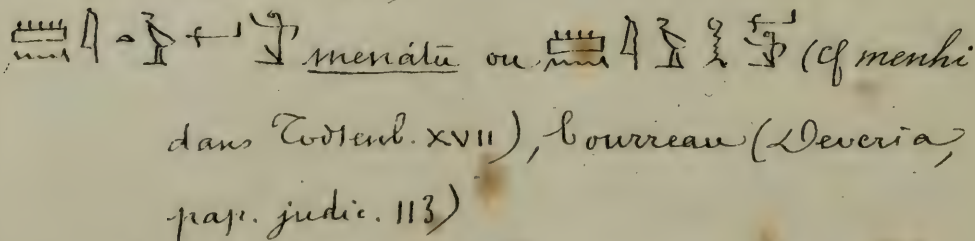 menátu ou (Cf menhi
dans Todtenb. XVII), bourreau (Deveria,
pap. judic. 113)